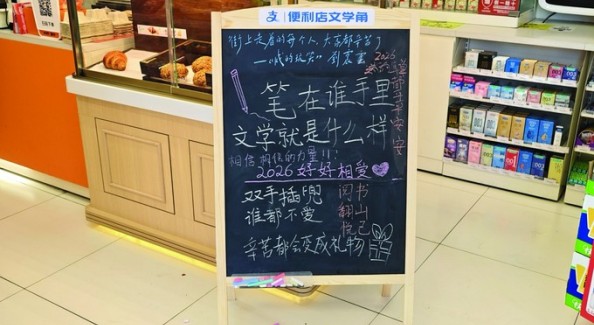 支 便利店文学角
街上走着的每个人,大家都辛苦了
笔在谁手里
文学就是什么样
相信相信的力量!!!
2026好好相爱
双手插兜
谁都不爱
阅书
翻山
悦己
辛苦都会变成礼物
2026
平平安安